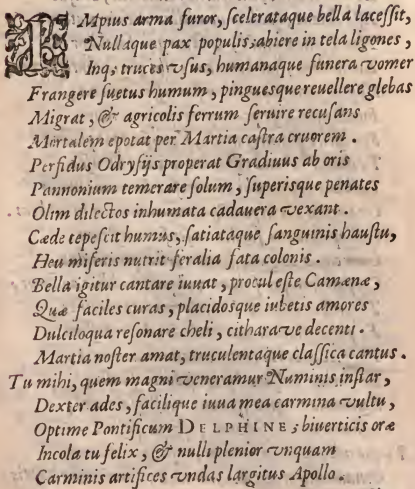 IMpius arma furor, ſcelerataque bella laceſſit,
Nullaque pax populis; abiere in tela ligones,
Inq; truces vſus, humanaque funera vomer
Frangere ſuetus humum, pingueſque reuellere glebas
Migrat, & agricolis ferrum ſeruire recuſans
Mortalem epotat per Martia caſtra cruorem.
Perfidus Odryſijs properat Gradiuus ab oris
Pannonium temerare ſolum; ſuperiſque penates
Olim dilectos inhumata cadauera vexant.
Cæde tepeſcit humus, ſatiataque ſanguinis hauſtu,
Heu miſeris nutrit feralia fata colonis.
Bella igitur cantare iuuat, procul eſte Camænæ,
Quæ faciles curas, placidoſque iubetis amores
Dulciloqua reſonare cheli, citharave decenti.
Martia noſter amat, truculentaque claſſica cantus.
Tu mihi, quem magni veneramur Numinis inſtar,
Dexter ades, facilique iuua mea carmina vultu,
Optime Pontificum DELPHINE; biuerticis oræ
Incola tu felix, & nulli plenior vnquam
Carminis artifices vndas largitus Apollo.